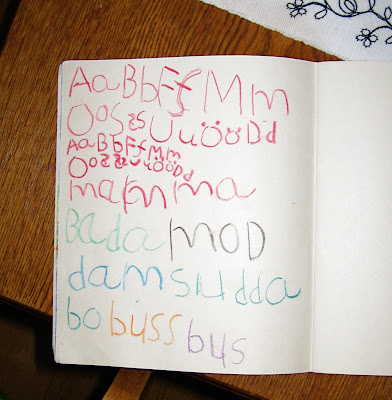 AaBbFfMm
OoSsUuÖöDd
AaBbFfMm
OoSsUuÖöDd
mamma
Bada MOD
dam sudda
bo buss bus